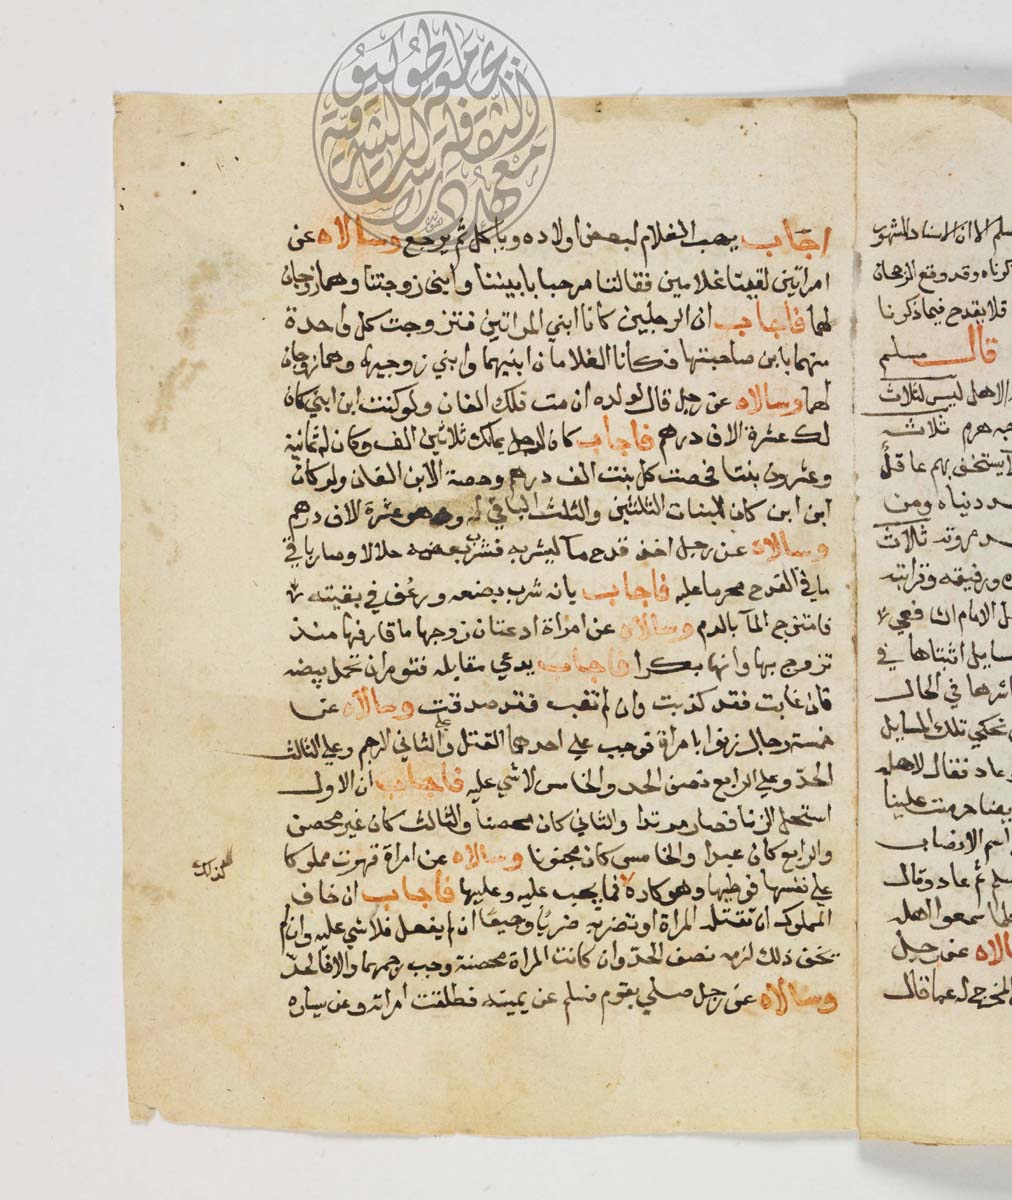 اجاب يهب الغلام لبعض اولاده وياكل ثم يرجع وسالاه عن
امراتين لقيتا غلامين فقالتا مرحبا بابنينا وابني زوجتنا وهما زوجان
لهما فاجاب ان الرجلين كانا ابني المراتين فتزوجت كل واحدة
منهما بابن صاحبتها فكانا الغلامان ابنيهما وابني زوجيهما وهما زوجان
لهما وسالاه عن رجل قال لولده ان مت فلك الفان ولو كنت ابن ابني كان
لك عشرة الاف درهم فاجاب كان الرجل يملك ثلاثين الف وكان له ثمانية
وعشرون بنتا فحصت كل بنت الف درهم وحصة الابن الفان ولو كان
ابن ابن كان للبنات الثلثين والثلث الباقي له وهو عشرة الاف درهم
وسالاه عن رجل اخذ قدح مآ ليشربه فشرب بعضه حلالا وصار باقي
ما في القدح محرما عليه فاجاب بانه شرب بضعه ورعف في بقيته
فامتزج المآ بالدم وسالاه عن امراة ادعت ان زوجها ما قاربها منذ
تزوج بها وانها بكرا فاجاب يدعي مقابله فتومر ان تحمل بيضه
فان غابت فقد كذبت وان لم تغب فقد صدقت وسالاه عن
خمسة رجال زنوا بامراة فوجب على احدهما القتل وعلى الثاني الرجم وعلي الثالث
الحد وعلي الرابع نصف الحد والخامس لا شي عليه فاجاب ان الاول
استحل الزنا فصار مرتدا والثاني كان محصنا والثالث كان غير محصن
والرابع كان عبدا والخامس كان مجنونا وسالاه عن امراة قهرت مملوكا
على نفسها فوطيها وهو كاره فما يجب عليه وعليها فاجاب ان خاف
المملوك ان تقتله المراة او تضربه ضربا وجيعا ان لم يفعل فلا شي عليه وان لم
يخف ذلك لزمه نصف الحد وان كانت المراة محصنة وجب رجمها والا فالحد
وسالاه عن رجل صلي بقوم فسلم عن يمينه فطلقت امراته وعن يساره
كذلك
كرناه وقد وقع الرجحان
فلا يقدح فيما ذكرنا
قال مسلم
الاهل ليس لثلاث
هرم ثلاثه
يستخف بهم عاقل
دنياه ومن
مروته ثلاث
ورفيقه وقرابته
الامام الشافعي
مسايل اثبتاها في
في الحال
نحكي تلك المسايل
عاد فقال لاهله
حرمت علينا
ثم عاد وقال
سمعوا اهله
سالاه عن رجل